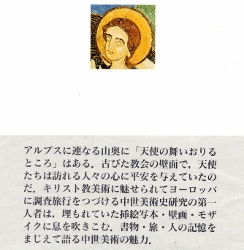 アルプスに連なる山奥に「天使の舞いおりる
ところ」はある．古びた教会の壁面で，天使
たちは訪れる人々の心に平安を与えていたの
だ．キリスト教美術に魅せられてヨーロッパ
に調査旅行をつづける中世美術史研究の第一
人者は，埋もれていた挿絵写本・壁画・モザ
イクに息を吹きこむ．書物・旅・人の記憶を
まじえて語る中世美術の魅力．